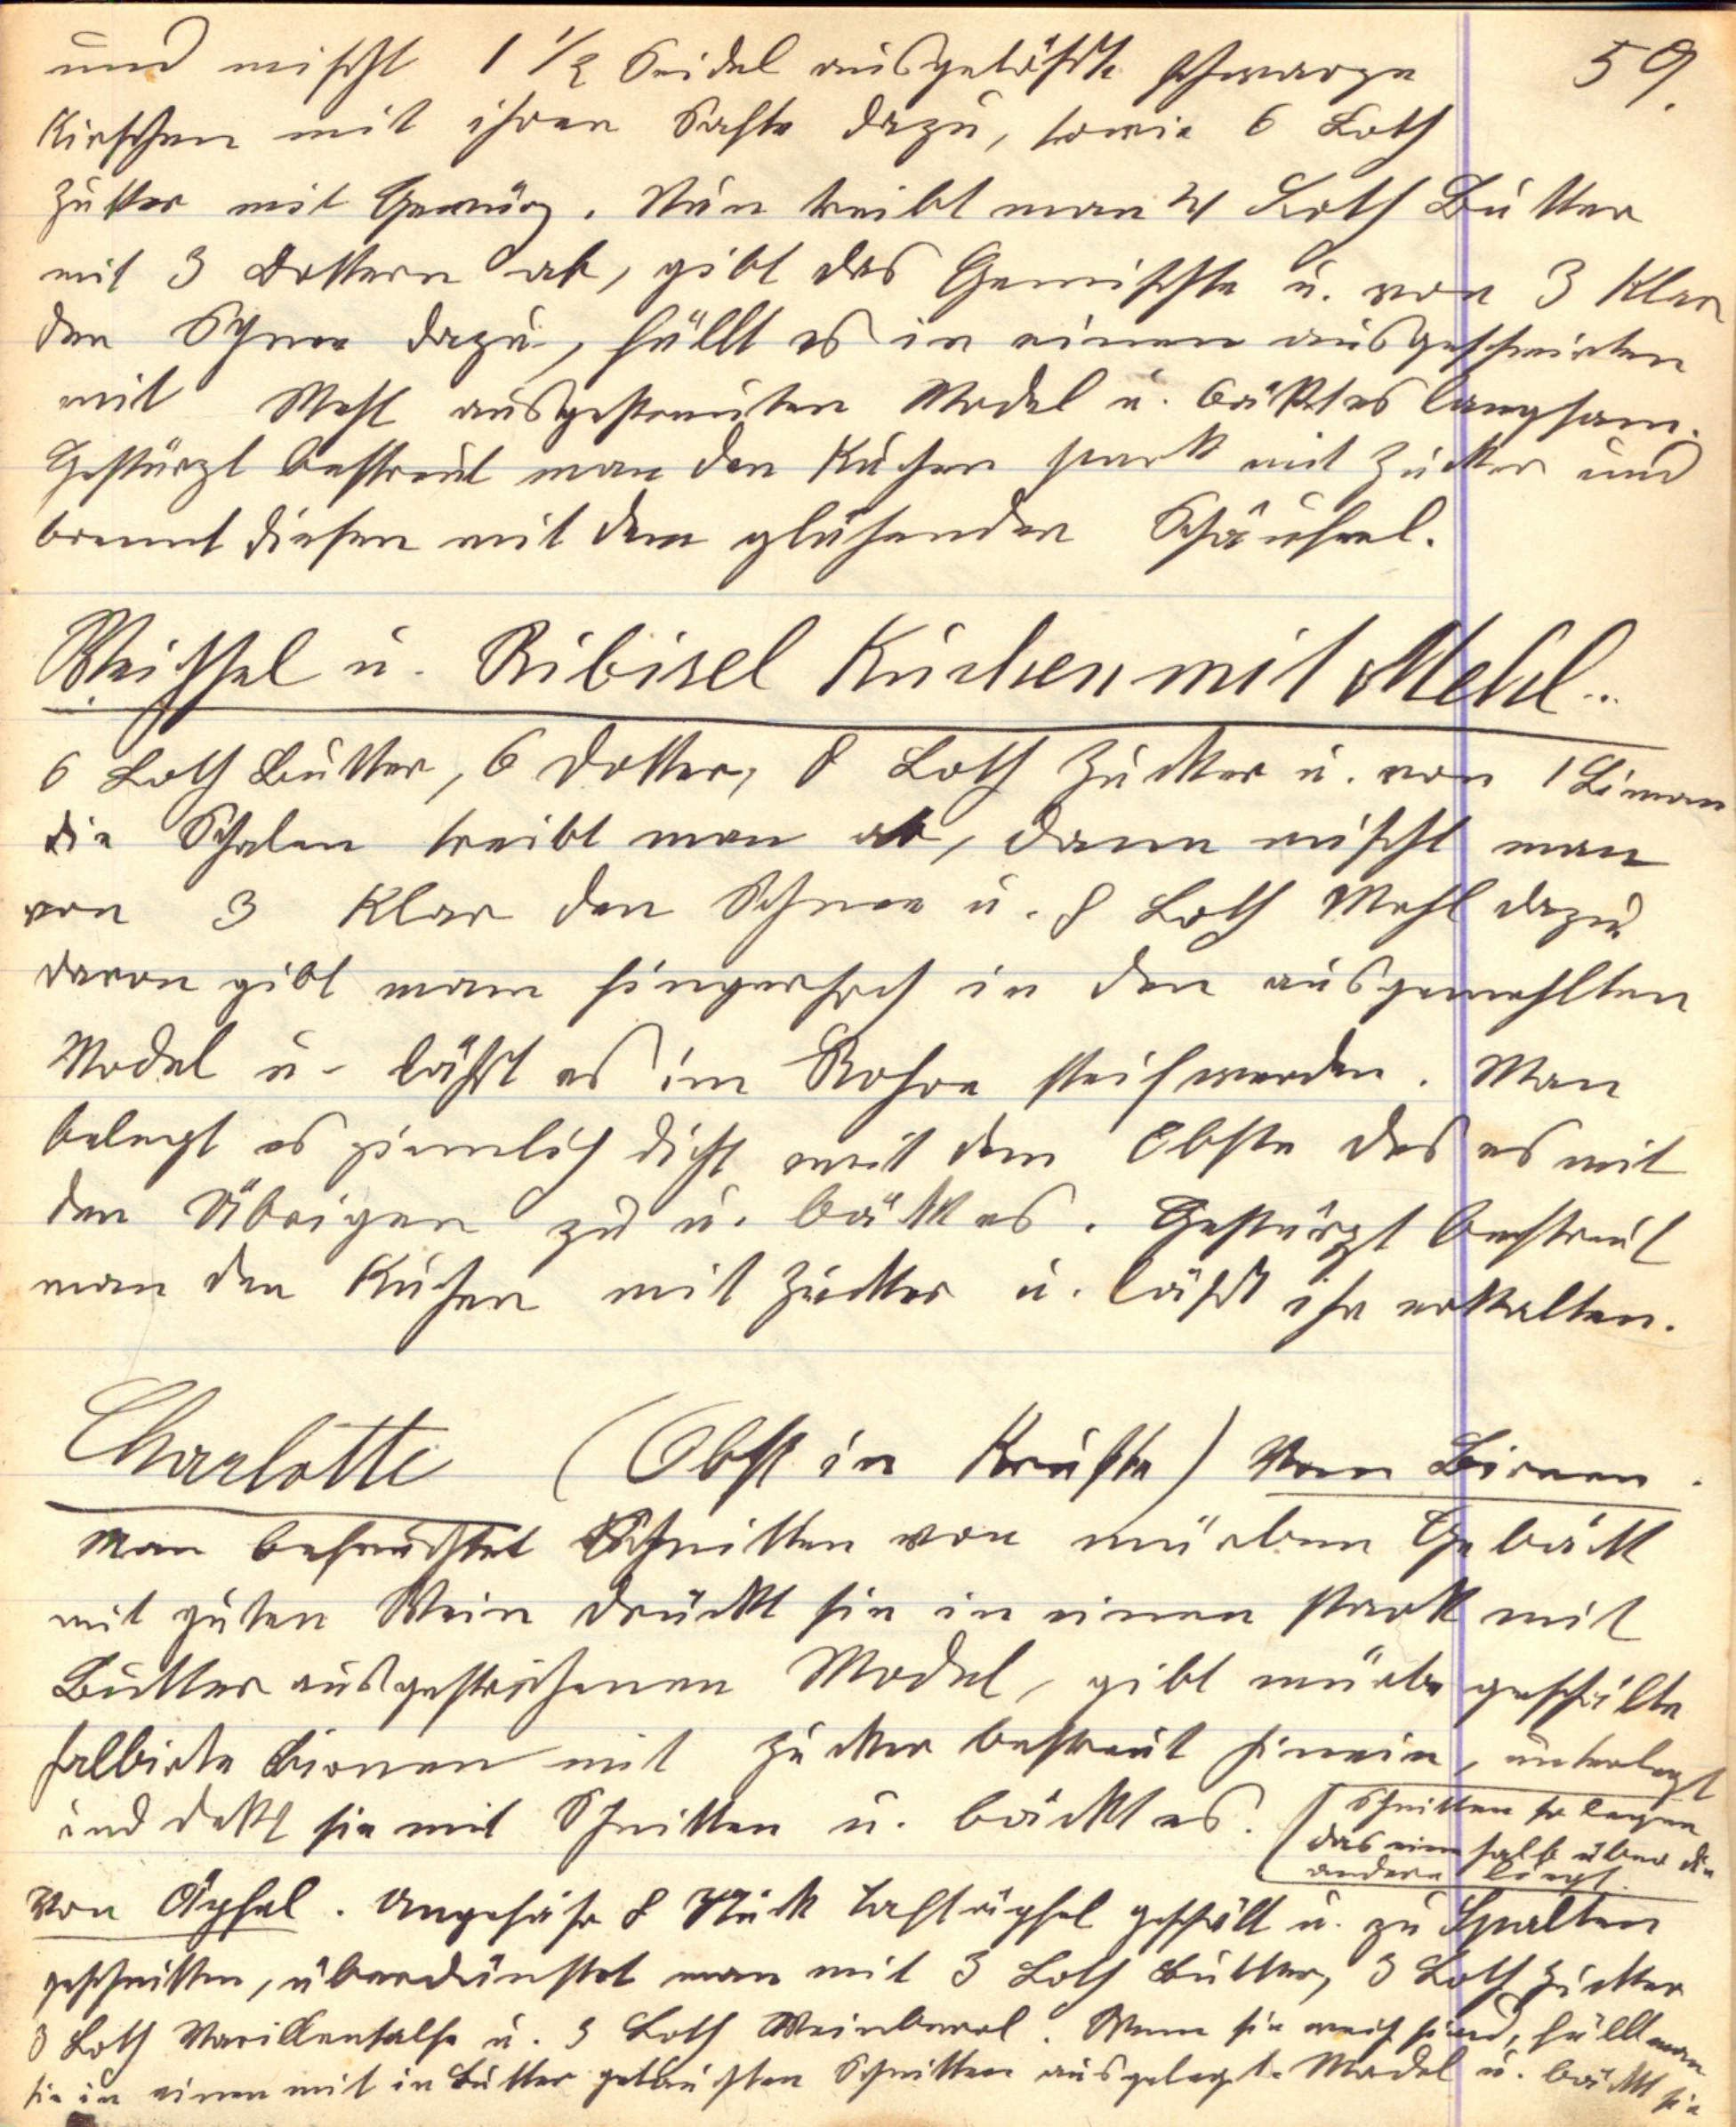 und mischt 1 1/2 Seidel ausgelöste schwarze 59.
Kirschen mit ihren Safte dazu, sowie 6 Loth
Zucker mit Gewürz. Nun treibt man 4 Loth Butter
mit 3 Dottern ab, gibt das Gemischte u. von 3 Klar
den Schnee dazu, füllt es in einen ausgeschmirten
mit Mehl ausgestreuten Model u. bäckt es langsam.
Gestürzt bestreut man den Kuchen stark mit Zucker und
brennt diesen mit dem glühenden Schäuferl.
Weichsel u. Ribisel Kuchen mit Mehl.
6 Loth Butter, 6 Dotter, 8 Loth Zucker u. von 1 Limon
die Schalen treibt man ab, dann mischt man
von 3 Klar den Schnee u. 8 Loth Mehl dazu
davon gibt man fingerhoch in den ausgemehlten
Model u. läßt es im Rohre steif werden. Man
belegt es ziemlich dicht mit dem Obste das es mit
den Übrigen zu u. bäckt es. Gestürzt bestreut
man den Kuchen mit Zucker u. läßt ihn erkalten.
Charlotte (Obst in Kruste) Von Birnen.
Man befeuchtet Schnitten von mürben Gebäck
mit guten Wein drückt sie in einen stark mit
Butter ausgestrichenen Model, gibt mürbe geschälte
halbirte Birnen mit Zucker bestreut hinein, unterlegt
und dekt sie mit Schnitten u. bäckt es. (Schnitten so legen
das eine halb über die
andere liegt.
Von Äpfel. Ungefähr 8 Stück Taftäpfel geschält u. zu Spalten
geschnitten, überdünstet man mit 3 Loth Butter, 3 Loth Zucker
3 Loth Marillensalse u. 3 Loth Weinberl. Wenn sie weich sind, füllt man
sie in einen mit in Butter getauchten Schnitten ausgelegt. Model u. bäckt sie